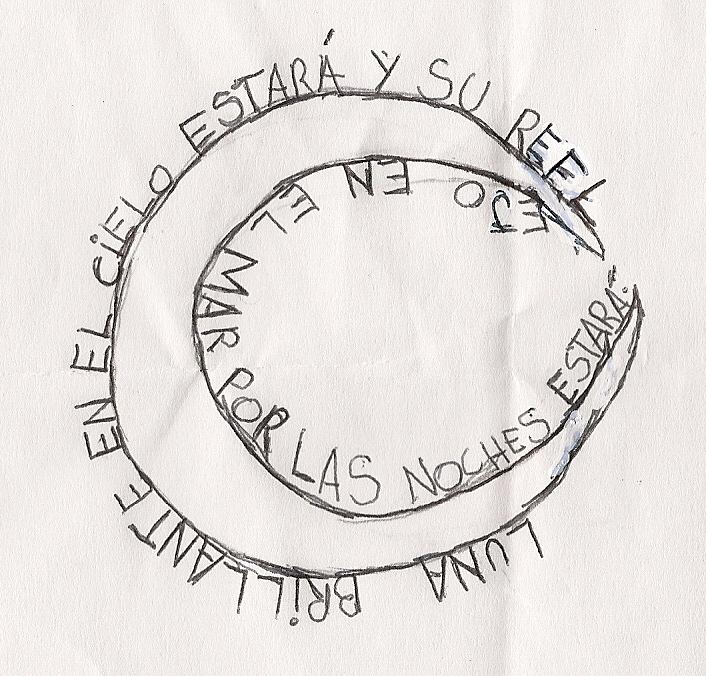 LUNA BRiLLANTE EN EL CiELO ESTARÁ Y SU REFL
EJO EN EL MAR POR LAS NOCHES ESTARÁ.